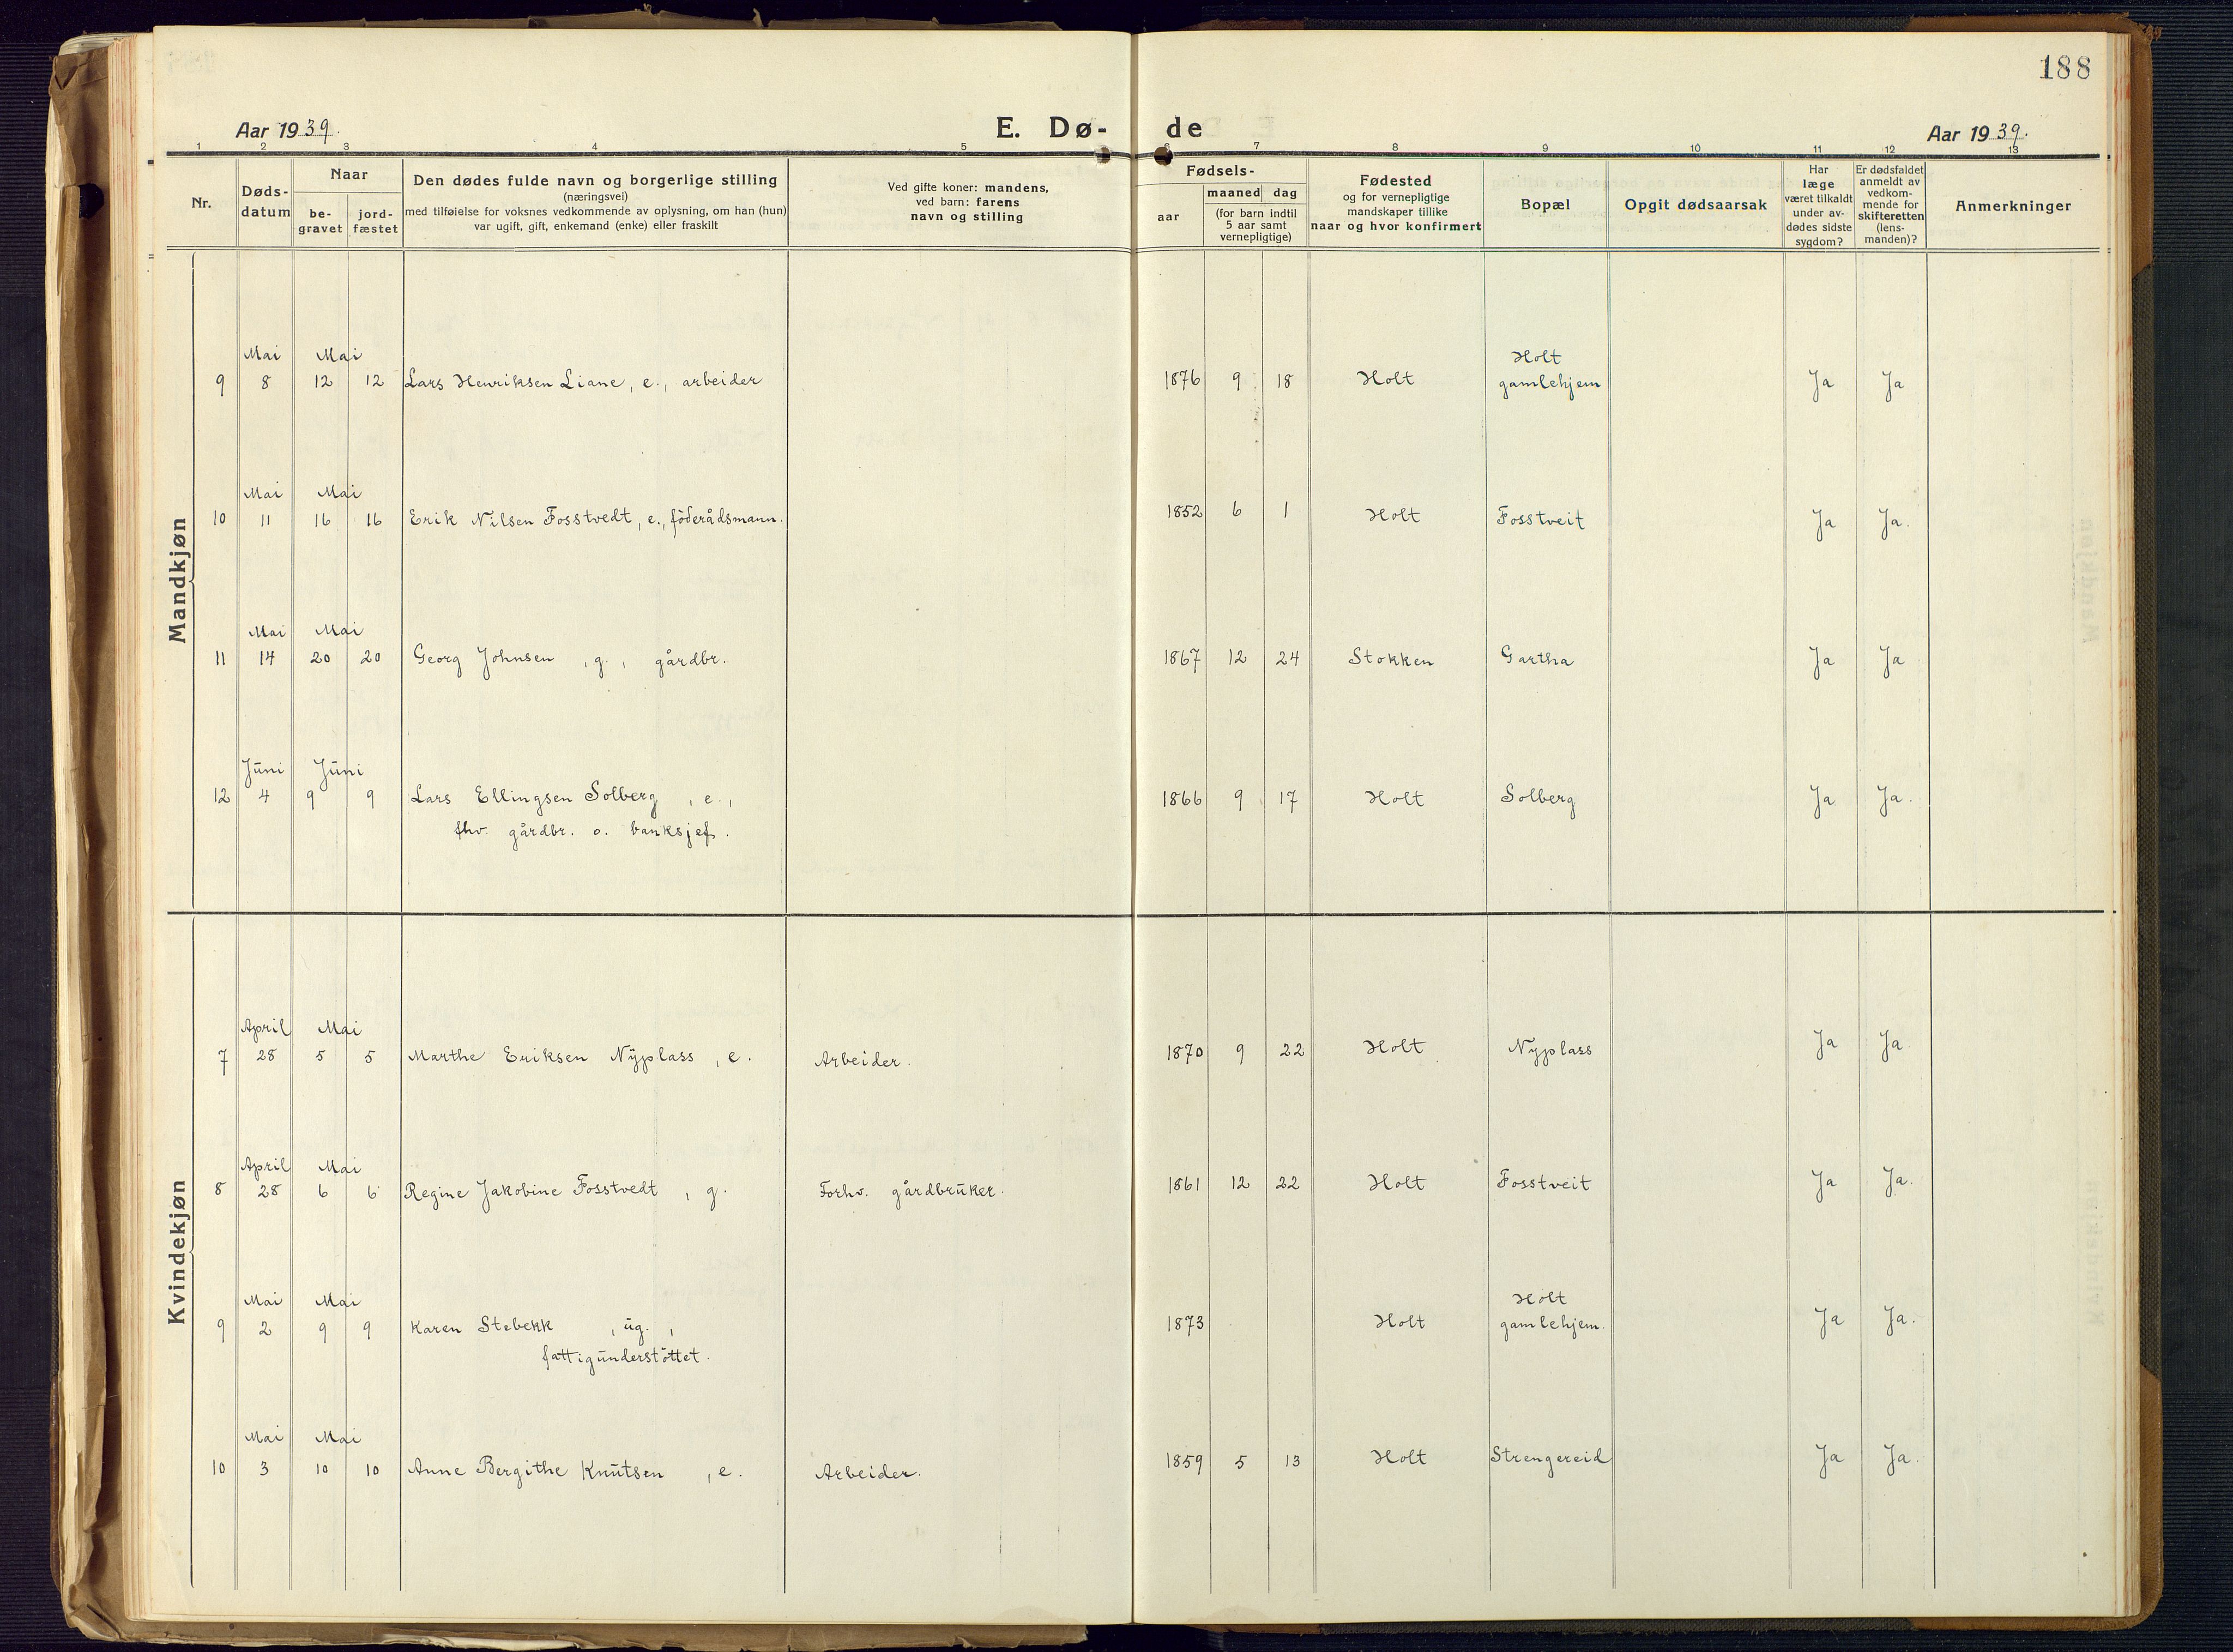 188
Aar 1939.
E. Dø-
de
Aar 1939.
1 2 3 4 5 6 7 8 9 10 11 12 13
Nr.
Døds-
datum
Naar
be-
gravet
jord-
fæstet
Den dødes fulde navn og borgerlige stilling
(næringsvei)
med tilføielse for voksnes vedkommende av oplysning, om han (hun)
var ugift, gift, enkemand (enke) eller fraskilt
Ved gifte koner: mandens,
ved barn: farens
navn og stilling
Fødsels-
aar
maaned dag
(for barn indtil
5 aar samt
vernepligtige)
Fødested
og for vernepligtige
mandskaper tillike
naar og hvor konfirmert
Bopæl
Opgit dødsaarsak
Har
læge
været tilkaldt
under av-
dødes sidste
sygdom?
Er dødsfaldet
anmeldt av
vedkom-
mende for
skifteretten
(lens-
manden)?
Anmerkninger
Mandkjøn
Mai Mai Holt
9 8 12 12 Lars Henriksen Liane, e., arbeider 1876 9 18 Holt gamlehjem Ja Ja
Mai Mai
10 11 16 16 Erik Nilsen Fosstvedt, e., föderådsmann. 1852 6 1 Holt Fosstveit Ja Ja.
Mai Mai
11 14 20 20 Georg Johnsen, g., gårdbr. 1867 12 24 Stokken Gartha Ja Ja
Juni Juni
12 4 9 9 Lars Ellingsen Solberg, e., 1866 9 17 Holt Solberg Ja Ja.
fhv. gårdbr. o. banksjef.
Kvindekjøn
April Mai
7 28 5 5 Marthe Eriksen Nyplass, e. Arbeider. 1870 9 22 Holt Nyplass Ja Ja
April Mai
8 28 6 6 Regine Jakobine Fosstvedt, g. Forhv. gårdbruker. 1861 12 22 Holt Fosstveit Ja Ja.
Mai Mai Holt
9 2 9 9 Karen Stebekk, ug., 1873 Holt gamlehjem. Ja Ja.
fattigunderstöttet.
Mai Mai
10 3 10 10 Anne Bergithe Knutsen, e. Arbeider. 1859 5 13 Holt Strengereid Ja Ja.